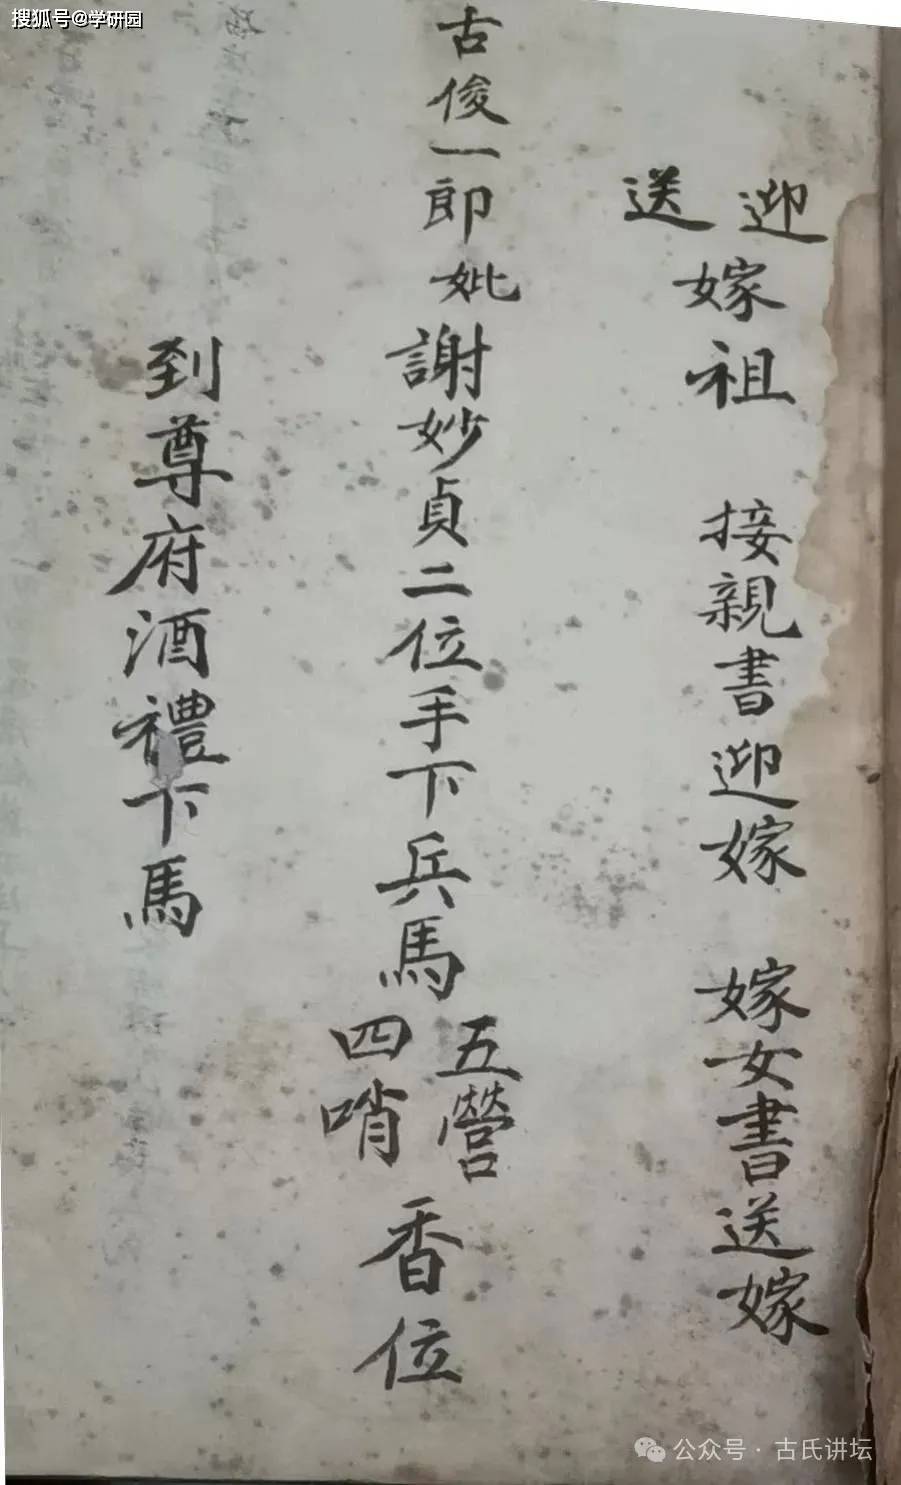 搜狐号@学研园
迎送嫁祖 接親書迎嫁 嫁女書送嫁
古俊一郎妣謝妙貞二位手下兵馬五營四哨香位
到尊府酒禮下馬
公众号·古氏讲坛